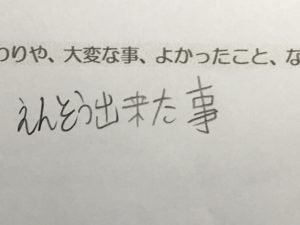 わりや、大変な事、よかったこと、な
えんそう出来た事